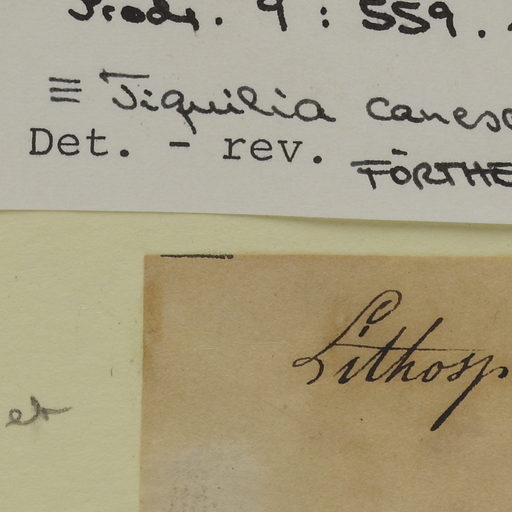 Prodr. 9 : 559.
≡ Tiquilia canesc
Det. - rev. FÖRTHE
Lithosp
et